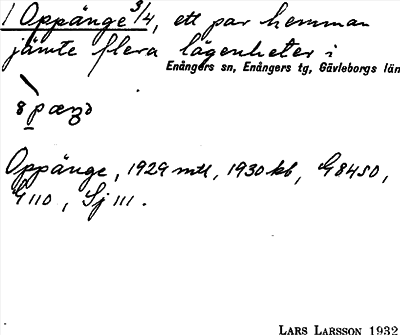 1 Oppänge 3/4, ett par hemman
jämte flera lägenheter i
Enångers sn, Enångers tg, Gävleborgs län
Oppänge, 1929 mtl, 1930 kb, G8450,
G110, Sj 111.
LARS LARSSON 1932